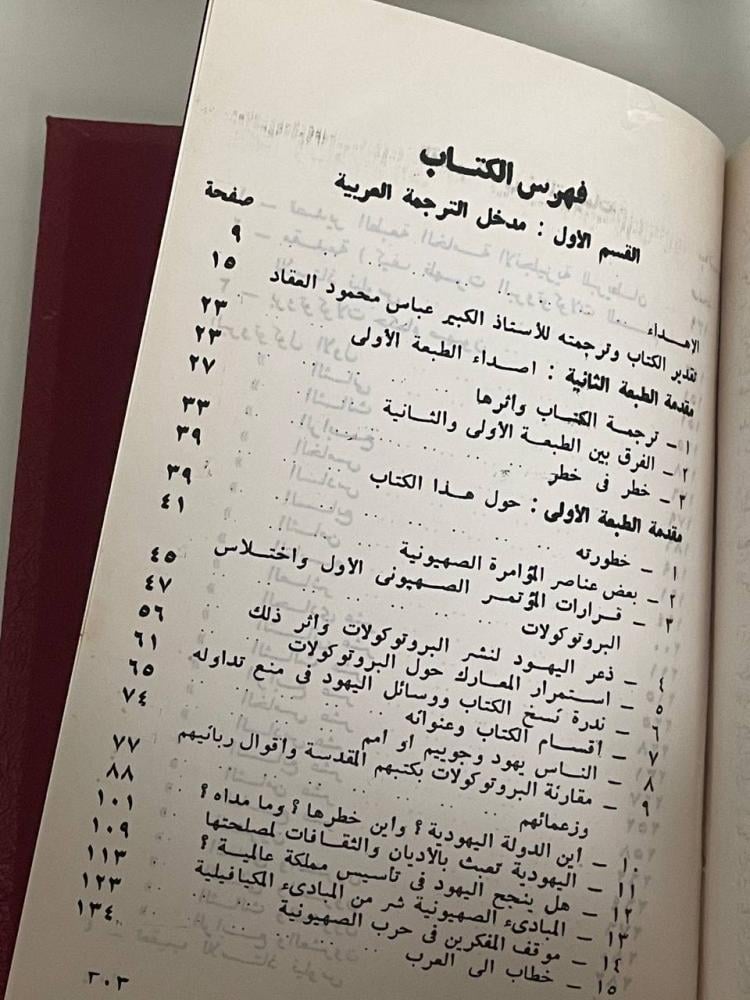 فهرس الكتـاب
القسم الاول : مدخل الترجمة العربية
صفحة
الاهـداء ٩
تقدير الكتاب وترجمته للأستاذ الكبير عباس محمود العقاد ١٥
مقدمة الطبعة الثانية : اصـداء الطبعة الأولى ٢٣
١ – ترجمـة الكتـاب وأثرها ٢٣
٢ – الفرق بين الطبعـة الأولى والثـانية ٢٧
٣ – خطر فى خطر ٣٣
مقدمة الطبعة الأولى : حول هـذا الكتاب ٣٩
١ – خطورته ٣٩
٢ – بعض عناصر المؤامرة الصهيونية ٤١
٣ – قـرارات المؤتمـر الصـهيونى الأول واختـلاس
البروتوكولات ٤٥
٤ – ذعر اليهـود لنشر البروتوكولات وأثر ذلك ٤٧
٥ – استـمرار المعـارك حول البروتوكولات ٥٦
٦ – ندرة نسخ الكتاب ووسائل اليهود فى منع تداوله ٦١
٧ – أقسـام الكتاب وعنوانه ٦٥
٨ – الناس يهود وجوييم أو أمم ٧٤
٩ – مقارنة البروتوكولات بكتبهم المقدسة وأقوال ربانيهم
وزعمائهم ٧٧
١٠ – أين الدولة اليهودية ؟ وأين خطرها ؟ وما مداه ؟ ٨٨
١١ – اليهودية تعبث بالأديان والثقـافات لمصلحتها ١٠١
١٢ – هل ينجح اليهود فى تأسيس مملكة عالميـة ؟ ١٠٩
١٣ – المبادىء الصهيونية شر من المبادىء المكيافيلية ١١٣
١٤ – موقف المفكرين فى حرب الصهيونية ١٢٣
١٥ – خطاب الى العرب ١٣٤
٢٠٣